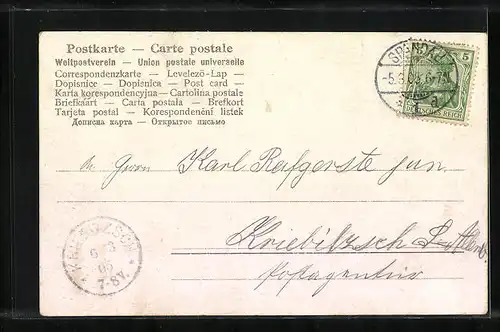 Postkarte — Carte postale
Weltpostverein — Union postale universelle
Correspondenzkarte — Levelező-Lap —
Dopisnice — Dopisnica — Post card —
Karta korespondencyjna — Cartolina postale
Briefkaart — Carta postala — Brefkort
Tarjeta postal — Korespondenční lístek
Дописна карта — Открытое письмо
5
DEUTSCHES REICH
Herrn Karl Rafgerste jun.
Kriebitzsch
Postagentur
7-8V.